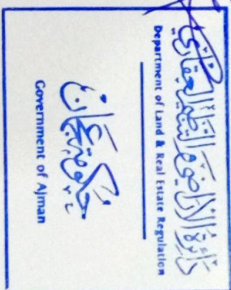 دائرة الأراضي والتنظيم العقاري
Department of Land & Real Estate Regulation
حكومة عجمان
Government of Ajman